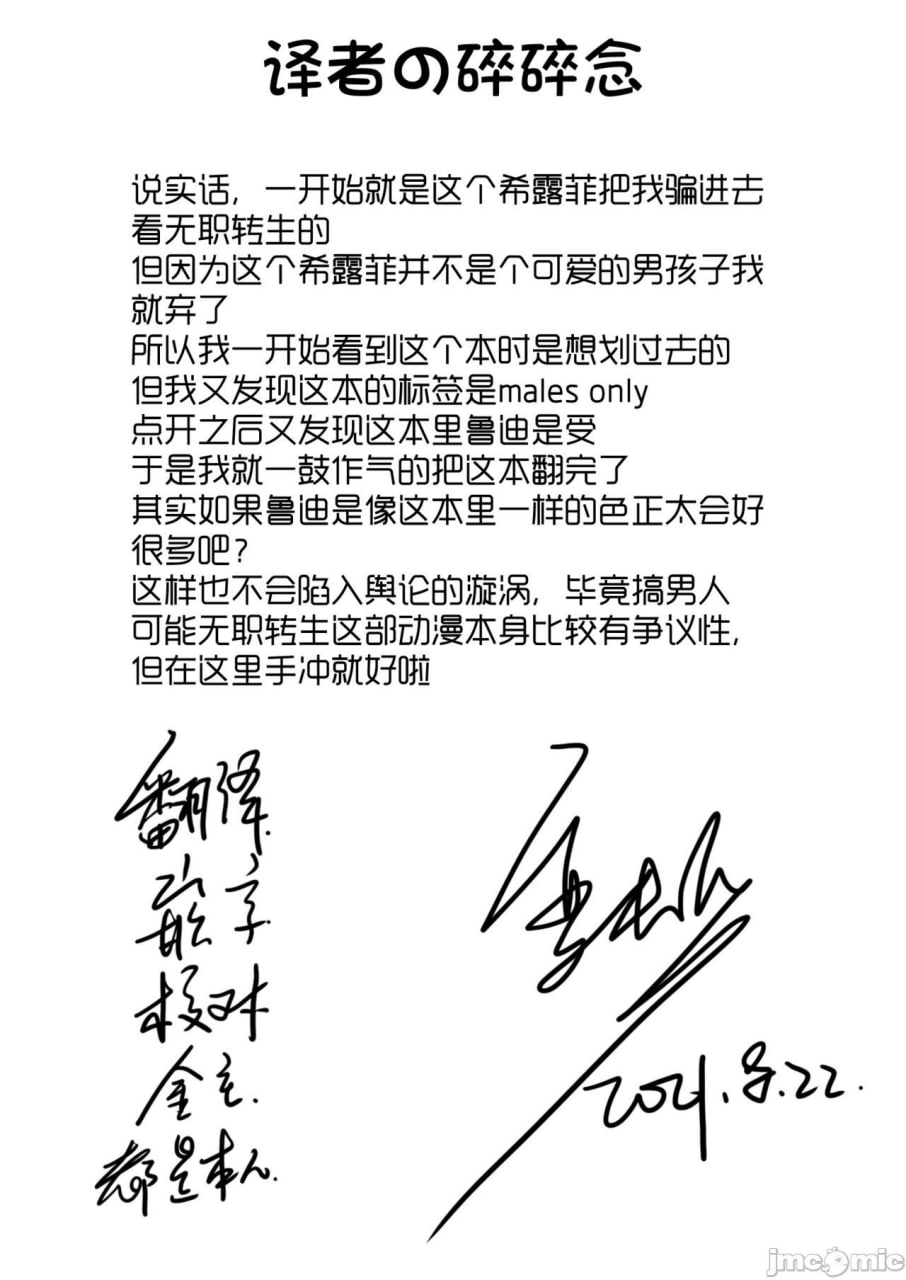 译者の碎碎念
说实话，一开始就是这个希露菲把我骗进去
看无职转生的
但因为这个希露菲并不是个可爱的男孩子我
就弃了
所以我一开始看到这个本时是想划过去的
但我又发现这本的标签是males only
点开之后又发现这本里鲁迪是受
于是我就一鼓作气的把这本翻完了
其实如果鲁迪是像这本里一样的色正太会好
很多吧？
这样也不会陷入舆论的漩涡，毕竟搞男人
可能无职转生这部动漫本身比较有争议性，
但在这里手冲就好啦
翻译
嵌字
校对
金主
都是本人
2021.8.22.
jmcomic